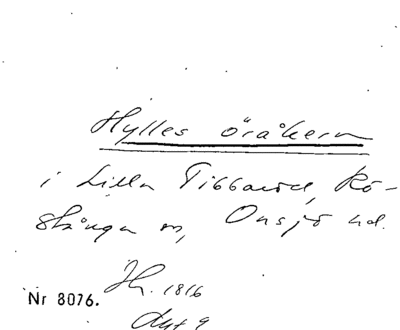 Hylles öråkern
i Lilla Tibbaröd, Rö-
stånga sn, Onsjö hd.
Jh. 1816
Nr 8076.
Akt 9